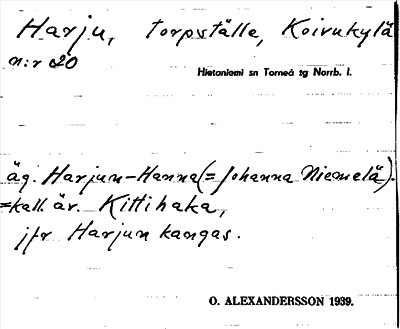 Harju, torpställe, Koivukylä
n:r 20
Hietaniemi sn Torneå tg Norrb. l.
äg. Harjun-Hanna (= Johanna Niemelä).
=kall. är. Kittihaka,
jfr Harjun kangas.
O. ALEXANDERSSON 1939.